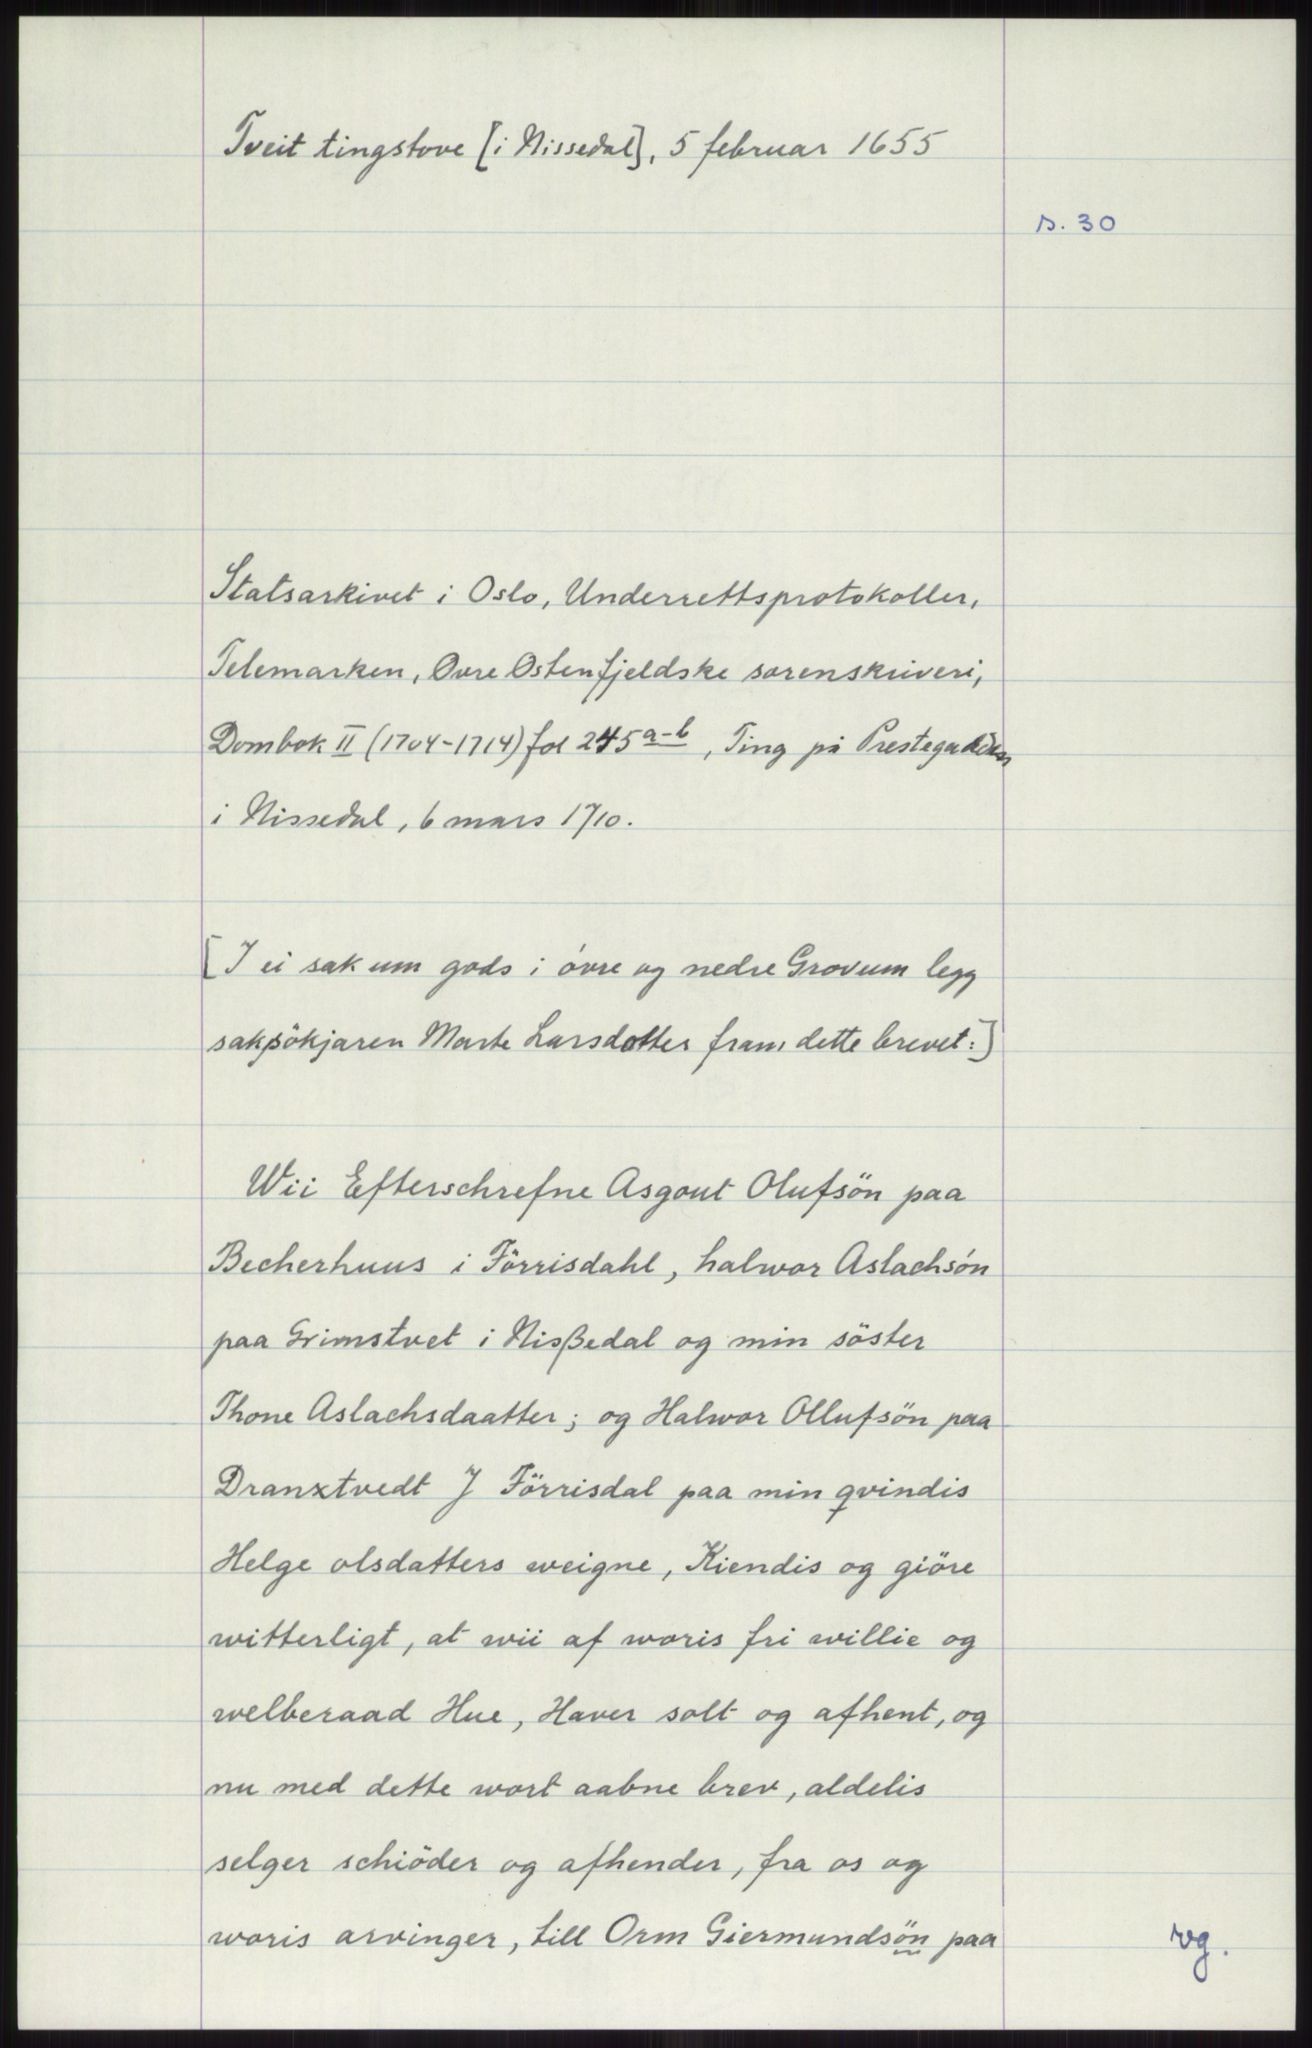 Tveit tingstove [i Nissedal], 5 februar 1655
s. 30
Statsarkivet i Oslo, Underrettsprotokoller,
Telemarken, Øvre Østenfjeldske sorenskriveri,
Dombok II (1704-1714) fol 245 a-b, Ting på Prestegarden
i Nissedal, 6 mars 1710.
[I ei sak um gods i óvre og nedre Grovum legg
saksökjaren Marte Larsdotter fram dette brevet:]
Wii Efterschrefne Asgout Olufsön paa
Becherhuus i Förrisdahl, halwor Aslachsón
paa Grimstvet i Nißedal og min söster
Thone Aslachsdaatter; og Halwor Ollufsön paa
Dranxtvedt J Förrisdal paa min qvindis
Helge olsdatters weigne, Kiendis og giöre
witterligt, at wii af woris fri willie og
welberaad Hue, Haver solt og afhent, og
nu med dette wort aabne brev, aldelis
selger schiöder og afhender, fra os og
woris arvinger, till Orm Giermundsön paa
vg.